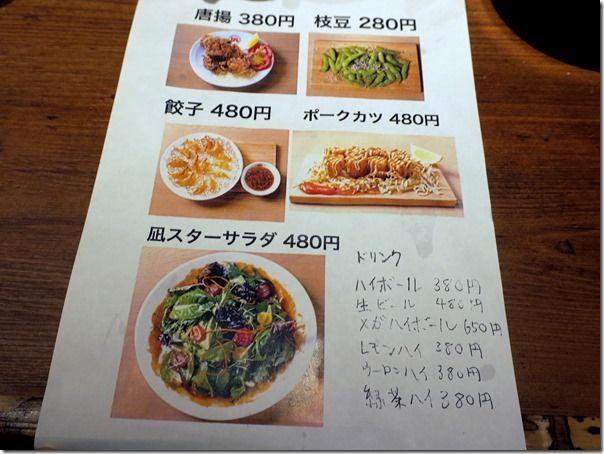 唐揚 380円 枝豆 280円
餃子 480円 ポークカツ 480円
凪スターサラダ 480円
ドリンク
ハイボール 380円
生ビール 480円
メガハイボール 650円
レモンハイ 380円
ウーロンハイ 380円
緑茶ハイ 380円